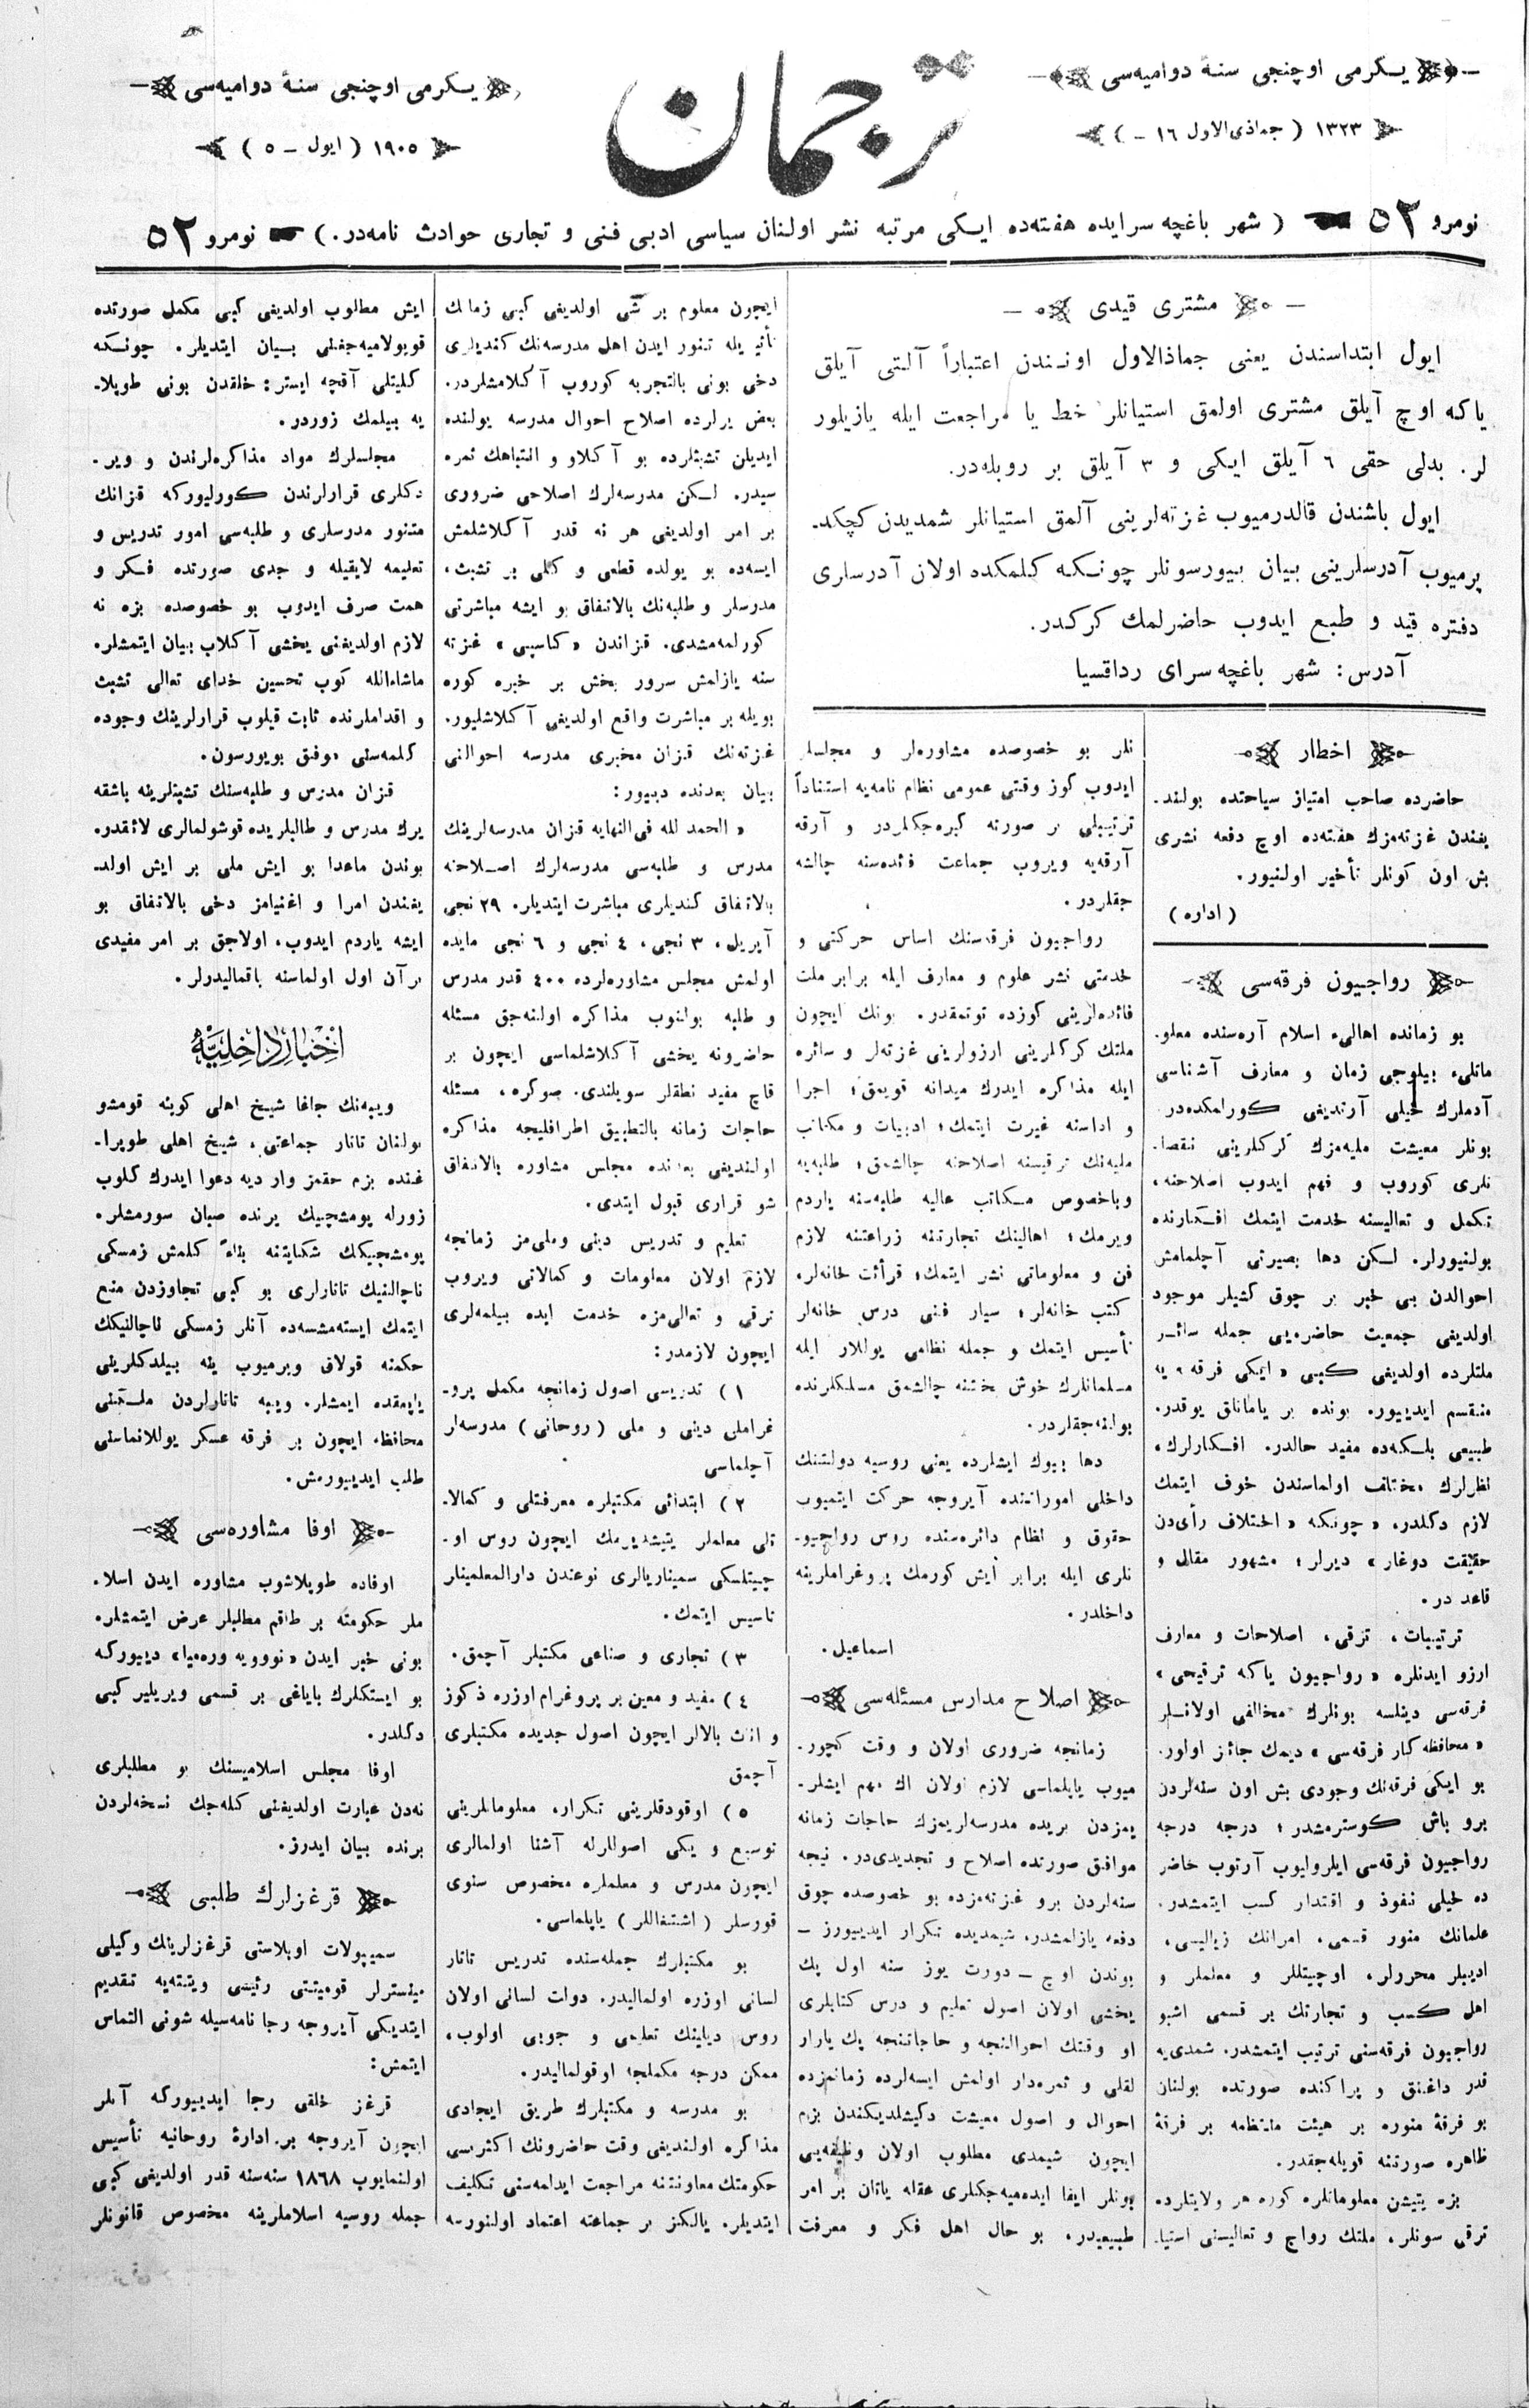 یـکرمی اوچنجی سنهٔ دوامیه‌سی
۱۳۲۳ ( جماذی‌الاول ۱٦ - )
ترجمان
یـکرمی اوچنجی سنهٔ دوامیه‌سی
۱۹۰۵ ( ایول - ۵ )
نومرو ۵۲ ( شهر باغچه سرایده هفته‌ده ایـکی مرتبه نشر اولنان سیاسی ادبی فنی و تجاری حوادث نامه‌در. ) نومرو ۵۲
مشتری قیدی
ایول ابتداسندن یعنی جماذالاول اونـندن اعتباراً آلتی آیلق
یاکه اوچ آیلق مشتری اولمق استیانلر خط یا مراجعت ایله یازیلور
لر. بدلی حقی ٦ آیلق ایکی و ۳ آیلق بر روبله‌در.
ایول باشندن قالدرمیوب غزته‌لرینی آلمق استیانلر شمدیدن کچکد-
یرمیوب آدرسلرینی بیان بیورسونلر چونـکه کلمکده اولان آدرسلری
دفتره قید و طبع ایدوب حاضرلمك کرکدر.
آدرس: شهر باغچه سرای رداقسیا
اخطار
حاضرده صاحب امتیاز سیاحتده بولند-
یغندن غزته‌مزك هفته‌ده اوچ دفعه نشری
بش اون کونلر تأخیر اولنیور.
( اداره )
رواجیون فرقه‌سی
بو زمانده اهالیء اسلام آره‌سنده معلو-
ماتلیء بیلوجی زمان و معارف آشناسی
آدملرك خیلی آرتدیغی کورلمکده‌در.
بونلر معیشت ملیه‌مزك کرکلرینی نقصا-
نلری کوروب و فهم ایدوب اصلاحنه،
تکمل و تعالیسنه خدمت ایتمك افـکارنده
بولنیورلر. لـکن دها بصیرتی آچلمامش
احوالدن بی خبر بر چوق کشیلر موجود
اولدیغی جمعیت حاضره‌یی جمله سائـر
ملتلرده اولدیغی کـبی « ایکی فرقه » یه
منقسم ایدییور. بونده بر یامانلق یوقدر.
طبیعی بلـکه‌ده مفید حالدر. افـکارلرك،
نظرلرك مختلف اولماسندن خوف ایتمك
لازم دکلدر، « چونکه « اختلاف رأی‌دن
حقیقت دوغار » دیرلر؛ مشهور مقال و
قاعد در.
ترتیبات، ترقی، اصلاحات و معارف
ارزو ایدنلره « رواجیون یاکه ترقیحی »
فرقه‌سی دینلسه بونلرك مخالفی اولانـلر
« محافظه کار فرقه‌سی » دیمك جائز اولور.
بو ایکی فرقه‌نك وجودی بش اون سنه‌لردن
برو باش کـوسترمشدر؛ درجه درجه
رواجیون فرقه‌سی ایلرولیوب آرتوب حاضر
ده خیلی نفوذ و اقتدار کسب ایتمشدر.
علمانك منور قسمی، امرانك زیالیسی،
ادیبلر محررلر، اوچیتللر و معلملر و
اهل کـسب و تجارتك بر قسمی اشبو
رواجیون فرقه‌سنی ترتیب ایتمشدر. شمدی‌یه
قدر داغنق و پراکنده صورتده بولنان
بو فرقهٔ منوره بر هیئت منتظمه بر فرقهٔ
ظاهره صورتنه قویله‌جقدر.
بزه یتیشن معلوماتلره کوره هر ولایتلرده
ترقی سونلر، ملتك رواج و تعالیسنی استیا-
نلر بو خصوصده مشاوره‌لر و مجلسلر
ایدوب کوز وقتی عمومی نظام نامه‌یه استناداً
ترتیبلی بر صورته کیره‌جکلردر و آرقه
آرقه‌یه ویروب جماعت فائده‌سنه چالشه
جقلردر.
رواجیون فرقه‌سنك اساس حرکتی و
خدمتی نشر علوم و معارف ایله برابر ملت
فائده‌لرینی کوزده توتمقدر. بونك ایچون
ملتك کرکلرینی ارزولرینی غزته‌لر و سائره
ایله مذاکره ایدرك میدانه قویمق؛ اجرا
و اداسنه غیرت ایتمك؛ ادبیات و مکاتب
ملیه‌نك ترقیسنه اصلاحنه چالشمق؛ طلبه‌یه
وباخصوص مـکاتب عالیه طلبه‌سنه یاردم
ویرمك؛ اهالینك تجارتنه زراعتنه لازم
فن و معلوماتی نشر ایتمك؛ قرأئت خانه‌لر،
کتب خانه‌لر؛ سیار فنی درس خانه‌لر
تأسیس ایتمك و جمله نظامی یوللار ایله
مسلمانلرك خوش بختنه چالشمق مسلکلرنده
بولنه‌جقلردر.
دها بیوك ایشلرده یعنی روسیه دولتنك
داخلی اموراتنده آیروجه حرکت ایتمیوب
حقوق و نظام دائره‌سنده روس رواجیو-
نلری ایله برابر ایش کورمك پروغراملرینه
داخلدر.
اسماعیل.
اصلاح مدارس مسئله‌سی
زمانجه ضروری اولان و وقت کچور-
میوب یاپلماسی لازم اولان اك مهم ایشلر-
یمزدن بریده مدرسه‌لریمزك حاجات زمانه
موافق صورتده اصلاح و تجدیدی‌در. نیجه
سنه‌لردن برو غزته‌مزده بو خصوصده چوق
دفعه یازلمشدر، شیمدیده تکرار ایدییورز –
بوندن اوچ – دورت یوز سنه اول پك
یخشی اولان اصول تعلیم و درس کتابلری
او وقتك احوالنجه و حاجاتنجه پك یارار
لقلی و ثمره‌دار اولمش ایسه‌لرده زمانمزده
احوال و اصول معیشت دکیشلدیکندن بزم
ایچون شیمدی مطلوب اولان وظیفه‌یی
بونلر ایفا ایده‌میه‌جکلری عقله یاتان بر امر
طبیعیدر، بو حال اهل فکر و معرفت
ایچون معلوم بر شی اولدیغی کبی زمانك
تأثیریله تنور ایدن اهل مدرسه‌نك کندیلری
دخی بونی بالتجربه کوروب آکلامشلردر.
بعض یرلرده اصلاح احوال مدرسه یولنده
ایدیلن تشبثلرده بو آکلاو و انتباهك ثمره
سیدر. لـکن مدرسه‌لرك اصلاحی ضروری
بر امر اولدیغی هر نه قدر آکلاشلمش
ایسه‌ده بو یولده قطعی و کلی بر تشبث،
مدرسلر و طلبه‌نك بالاتفاق بو ایشه مباشرتی
کورلمه‌مشدی. قزاندن « کاسپی » غزته
سنه یازلمش سرور بخش بر خبره کوره
بویله بر مباشرت واقع اولدیغی آکلاشلیور.
غزته‌نك قزان مخبری مدرسه احوالنی
بیان بعدنده دییور:
« الحمد لله فی‌النهایه قزان مدرسه‌لرینك
مدرس و طلبه‌سی مدرسه‌لرك اصـلاحنه
بالاتفاق کندیلری مباشرت ایتدیلر. ۲۹ نجی
آپریل، ۳ نجی، ٤ نجی و ٦ نجی مایده
اولمش مجلس مشاوره‌لرده ٤٠٠ قدر مدرس
و طلبه بولنوب مذاکره اولنه‌جق مسئله
حاضرونه یخشی آکلاشلماسی ایچون بر
قاچ مفید نطقلر سویلندی. صوکره، مسئله
حاجات زمانه بالتطبیق اطرافلیجه مذاکره
اولندیغی بعدنده مجلس مشاوره بالاتفاق
شو قراری قبول ایتدی.
تعلیم و تدریس دینی وملی‌مز زمانجه
لازم اولان معلومات و کمالاتی ویروب
ترقی و تعالی‌مزه خدمت ایده بیلمه‌لری
ایچون لازمدر:
۱ ) تدریسی اصول زمانجه مکمل پرو-
غراملی دینی و ملی ( روحانی ) مدرسه‌لر
آچلماسی
۲ ) ابتدائی مکتبلره معرفتلی و کمالا-
تلی معلملر یتیشدیرمك ایچون روس او-
چیتلسکی سمیناریالری نوعندن دارالمعلمینلر
تاسیس ایتمك.
۳ ) تجاری و صناعی مکتبلر آچمق.
٤ ) مفید و معین بر پروغرام اوزره ذکور
و اناث بالالر ایچون اصول جدیده مکتبلری
آچمق
۵ ) اوقودقلرینی تکرار، معلوماتلرینی
توسیع و یکی اصوللرله آشنا اولمالری
ایچون مدرس و معلملره مخصوص سنوی
قورسلر ( اشتغاللر ) یاپلماسی.
بو مکتبلرك جمله‌سنده تدریس تاتار
لسانی اوزره اولمالیدر. دولت لسانی اولان
روس دیلینك تعلیمی و جوبی اولوب،
ممکن درجه مکملجه اوقولمالیدر.
بو مدرسه و مکتبلرك طریق ایجادی
مذاکره اولندیغی وقت حاضرونك اکثریسی
حکومتك معاونتنه مراجعت ایدلمه‌سنی تکلیف
ایتدیلر. یالـکز بر جماعته اعتماد اولنورسه
ایش مطلوب اولدیغی کبی مکمل صورتده
قویولامیه‌جغنی بـیان ایتدیلر. چونـکه
کلیتلی آقچه ایستر: خلقدن بونی طوپلا-
یه بیلمك زوردر.
مجلسلرك مواد مذاکره‌لرندن و ویر-
دکلری قرارلرندن کـورلیورکه قزانك
متنور مدرسلری و طلبه‌سی امور تدریس و
تعلیمه لایقیله و جدی صورتده فـکر و
همت صرف ایدوب بو خصوصده بزه نه
لازم اولدیغنی یخشی آکلاب بیان ایتمشلر.
ماشاءالله کوب تحسین خدای تعالی تشبث
و اقداملرنده ثابت قیلوب قرارلرینك وجوده
کلمه‌سنی موفق بویورسون.
قزان مدرس و طلبه‌سنك تشبثلرینه باشقه
یرك مدرس و طالبلریده قوشولمالری لائقدر.
بوندن ماعدا بو ایش ملی بر ایش اولد-
یغندن امرا و اغنیامز دخی بالاتفاق بو
ایشه یاردم ایدوب، اولاجق بر امر مفیدی
بر آن اول اولماسنه باقمالیدرلر.
اخبار داخلیه
ویبه‌نك جاغا شیخ اهلی کوینه قومشو
بولنان تاتار جماعتی، شیخ اهلی طوپرا-
غنده بزم حقمز وار دیه دعوا ایدرك کلوب
زورله پومشچیك یرنده صبان سورمشلر.
پومشچیکك شکایتنه بناءً کلمش زمسکی
ناچالنیك تاتارلری بو کبی تجاوزدن منع
ایتمك ایسته‌مشسه‌ده آنلر زمسکی ناچالنیکك
حکمنه قولاق ویرمیوب ینه بیلدکلرینی
یاپمقده ایمشلر. ویبه تاتارلردن ملـکنی
محافظه ایچون بر فرقه عسکر یوللانماسنی
طلب ایدییورمش.
اوفا مشاوره‌سی
اوفاده طوپلاشوب مشاوره ایدن اسلا-
ملر حکومته بر طاقم مطلبلر عرض ایتمشلر.
بونی خبر ایدن « نوویه وره‌میا » دییورکه
بو ایستکلرك بایاغی بر قسمی ویریلیر کبی
دکلدر.
اوفا مجلس اسلامیسنك بو مطلبلری
نه‌دن عبارت اولدیغنی کله‌جك نسخه‌لردن
برنده بیان ایدرز.
قرغزلرك طلبی
سمیپولات اوبلاستی قرغزلرینك وکیلی
مینسترلر قومیتتی رئیسی ویتته‌یه تقدیم
ایتدیکی آیروجه رجا نامه‌سیله شونی التماس
ایتمش:
قرغز خلقی رجا ایدییورکه آنلر
ایچون آیروجه بر ادارهٔ روحانیه تأسیس
اولنمایوب ۱۸٦۸ سنه‌سنه قدر اولدیغی کبی
جمله روسیه اسلاملرینه مخصوص قانونلر